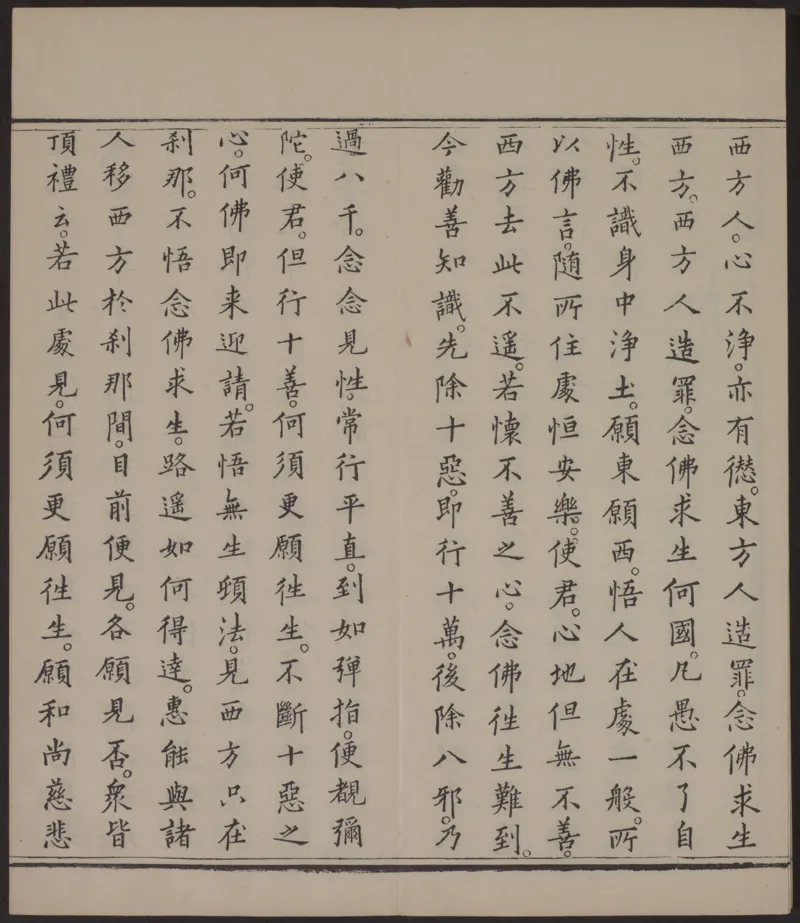 西方人。心不淨。亦有𠎝。東方人造罪。念佛求生
西方。西方人造罪。念佛求生何國。凡愚不了自
性。不識身中淨土。願東願西。悟人在處一般。所
以佛言。隨所住處恒安樂。使君。心地但無不善。
西方去此不遙。若懷不善之心。念佛徃生難到。
今勸善知識。先除十惡。即行十萬。後除八邪。乃
過八千。念念見性。常行平直。到如彈指。便覩彌
陀。使君。但行十善。何須更願徃生。不斷十惡之
心。何佛即来迎請。若悟無生頓法。見西方只在
刹那。不悟念佛求生。路遥如何得達。惠能與諸
人移西方於刹那間。目前便見。各願見否。衆皆
頂禮云。若此處見。何須更願徃生。願和尚慈悲